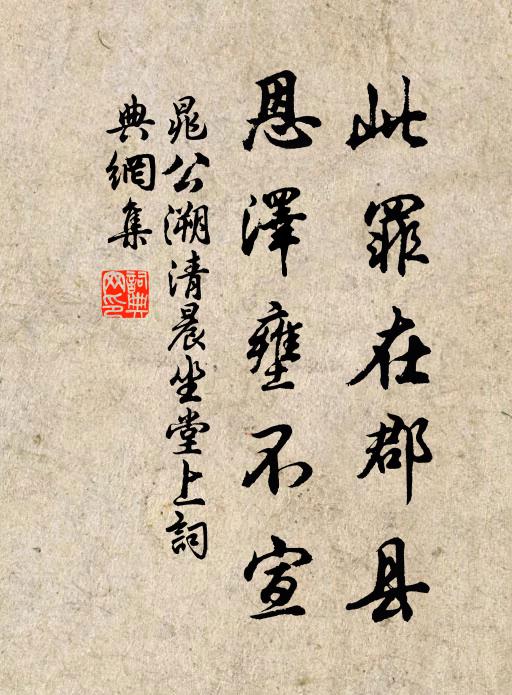 此罪在郡县
恩澤壅不宣
晁公溯清晨坐堂上詞
典網集
詞典網印